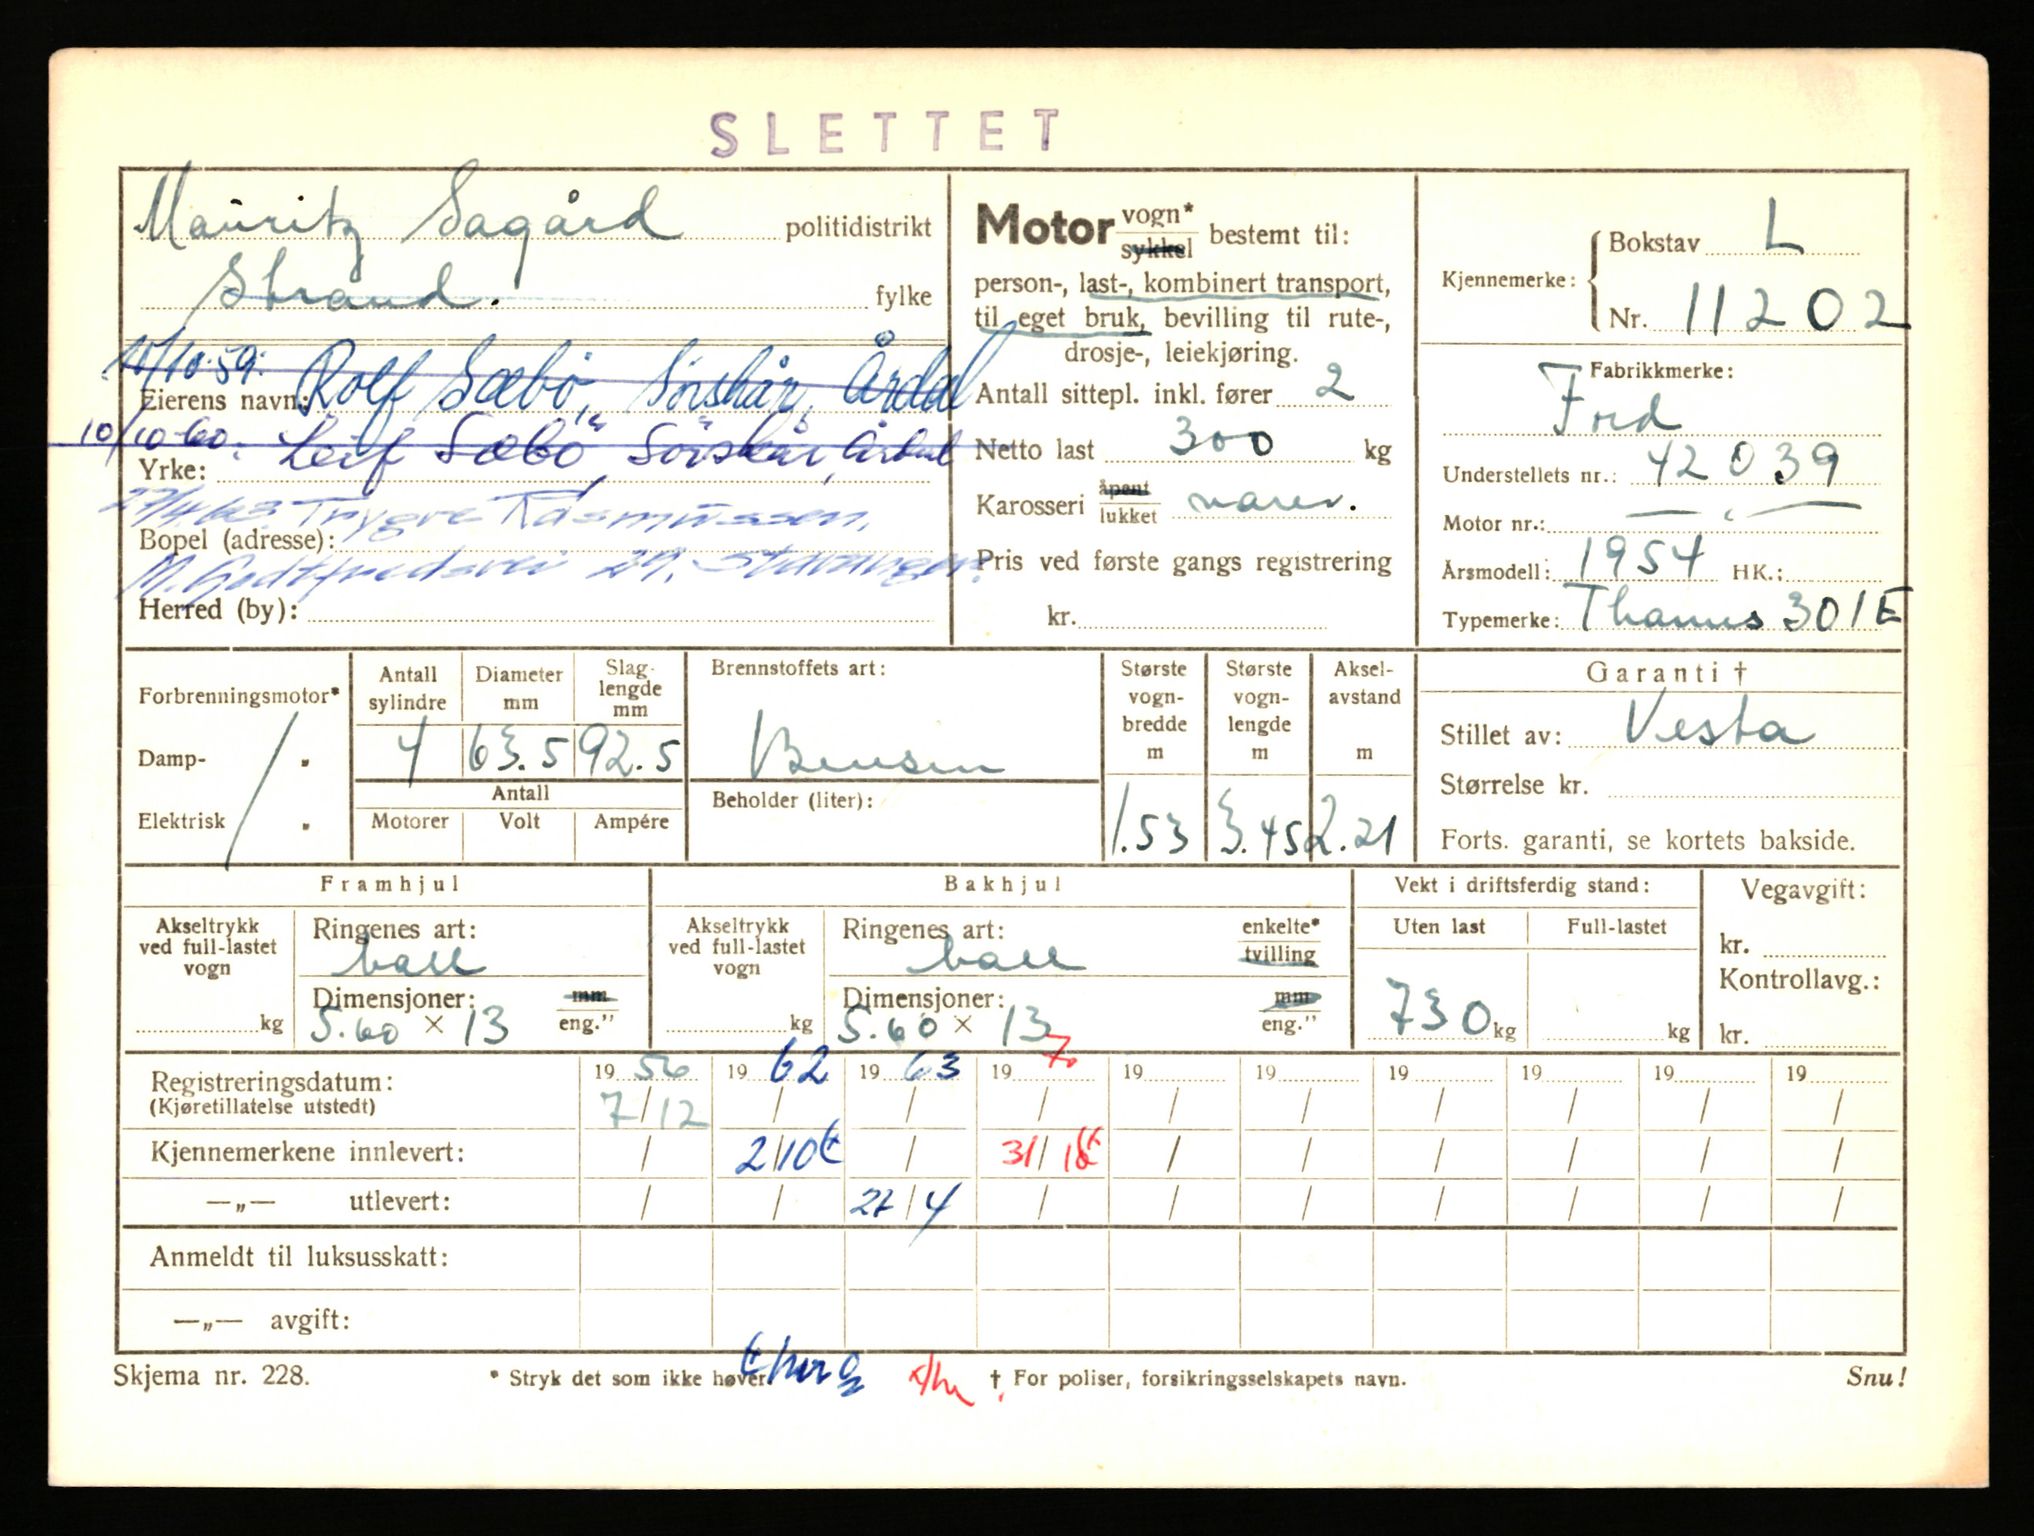 SLETTET
Mauritz Sagård politidistrikt
Strand. fylke
10.59. Rolf Sæbö, Sörskår, Årdal
Eierens navn:
10/10-60. Leif Sæbö, Sörskår, Årdal
Yrke:
27/4.63. Trygve Rasmussen,
Bopel (adresse):
29, Stavanger.
Herred (by):
Motor vogn*
sykkel bestemt til:
person-, last-, kombinert transport,
til eget bruk, bevilling til rute-,
drosje-, leiekjøring.
Antall sittepl. inkl. fører 2
Netto last 300 kg
Karosseri åpent
lukket varev.
Pris ved første gangs registrering
kr.
Kjennemerke: Bokstav L
Nr. 11202
Fabrikkmerke:
Ford
Understellets nr.: 42039
Motor nr.: — " —
Årsmodell: 1954 HK.:
Typemerke: Thames 301E
Forbrenningsmotor*
Damp- "
Elektrisk "
Antall sylindre Diameter mm Slag-lengde mm
4 63.5 92.5
Antall
Motorer Volt Ampére
Brennstoffets art:
Bensin
Beholder (liter):
Største vogn-bredde m Største vogn-lengde m Aksel-avstand m
1.53 3.45 2.21
Garanti †
Stillet av: Vesta
Størrelse kr.
Forts. garanti, se kortets bakside.
Framhjul
Akseltrykk ved full-lastet vogn
kg
Ringenes art:
ball
Dimensjoner: mm
5.60 × 13 eng."
Bakhjul
Akseltrykk ved full-lastet vogn
kg
Ringenes art: enkelte*
ball tvilling
Dimensjoner: mm
5.60 × 13 eng."
Vekt i driftsferdig stand:
Uten last Full-lastet
730 kg kg
Vegavgift:
kr.
Kontrollavg.:
kr.
Registreringsdatum: 19 56 19 62 19 63 19 70 19 19 19 19 19 19
(Kjøretillatelse utstedt) 7/12 / / / / / / / / /
Kjennemerkene innlevert: / 2/10 / 31/ / / / / / /
—„— utlevert: / / 27/4 / / / / / / /
Anmeldt til luksusskatt:
—„— avgift:
Skjema nr. 228. * Stryk det som ikke høver. † For poliser, forsikringsselskapets navn. Snu!